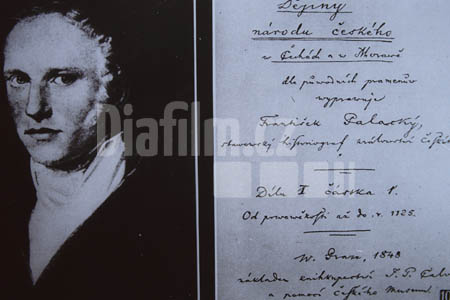 Dějiny
národu českého
w Čechách a w Morawě
dle půwodních pramenůw
wyprawuje
František Palacký,
stawowský historiograf králowstwí České
Dílu I částka 1.
Od prwowěkosti až do r. 1125.
W Praze, 1848
nákladem knihkupectwí J. G. Calw
a pomocí českého Museum
Diafilm.cz